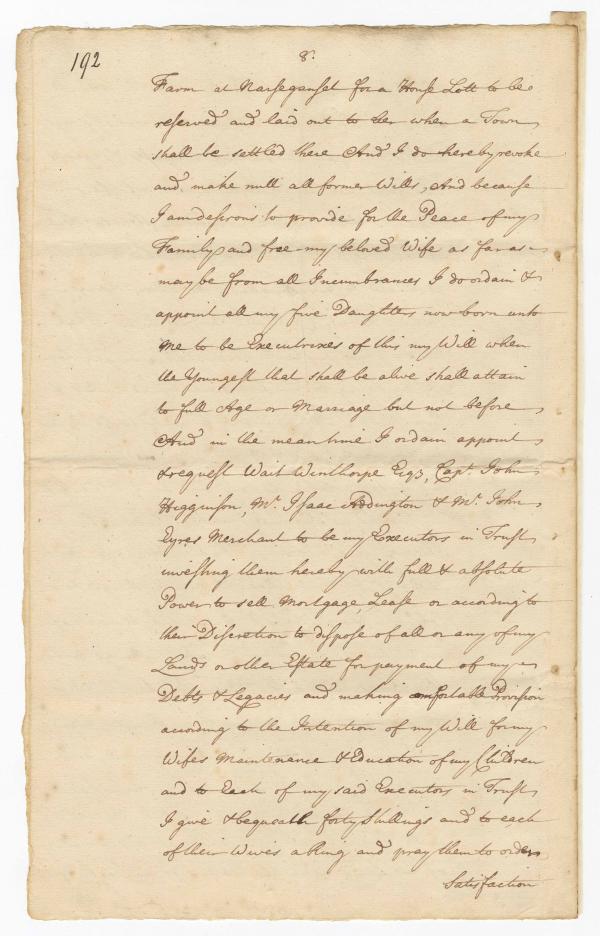 192
8.
Farm at Narseganset for a House Lott to be
reserved and laid out to her when a Town
shall be settled there And I do hereby revoke
and make null all former Wills, And because
I am desirous to provide for the Peace of my
Family and free my beloved Wife as far as
may be from all Incumbrances I do ordain &
appoint all my five Daughters now born unto
me to be Executrixes of this my Will when
the Youngest that shall be alive shall attain
to full Age or Marriage but not before
And in the mean time I ordain appoint
& request Wait Winthorpe Esqz, Capt. John
Higginson, Mr. Isaac Addington & Mr. John
Eyres Merchant to be my Executors in Trust
investing them hereby with full & absolute
Power to sell Mortgage, Lease or according to
their Discretion to dispose of all or any of my
Lands or other Estate for payment of my
Debts & Legacies and making comfortable Provision
according to the Intention of my Will for my
Wifes Maintenance & Education of my Children
and to Each of my said Executors in Trust
I give & bequeath forty Shillings and to each
of their Wives a Ring and pray them to order
Satisfaction